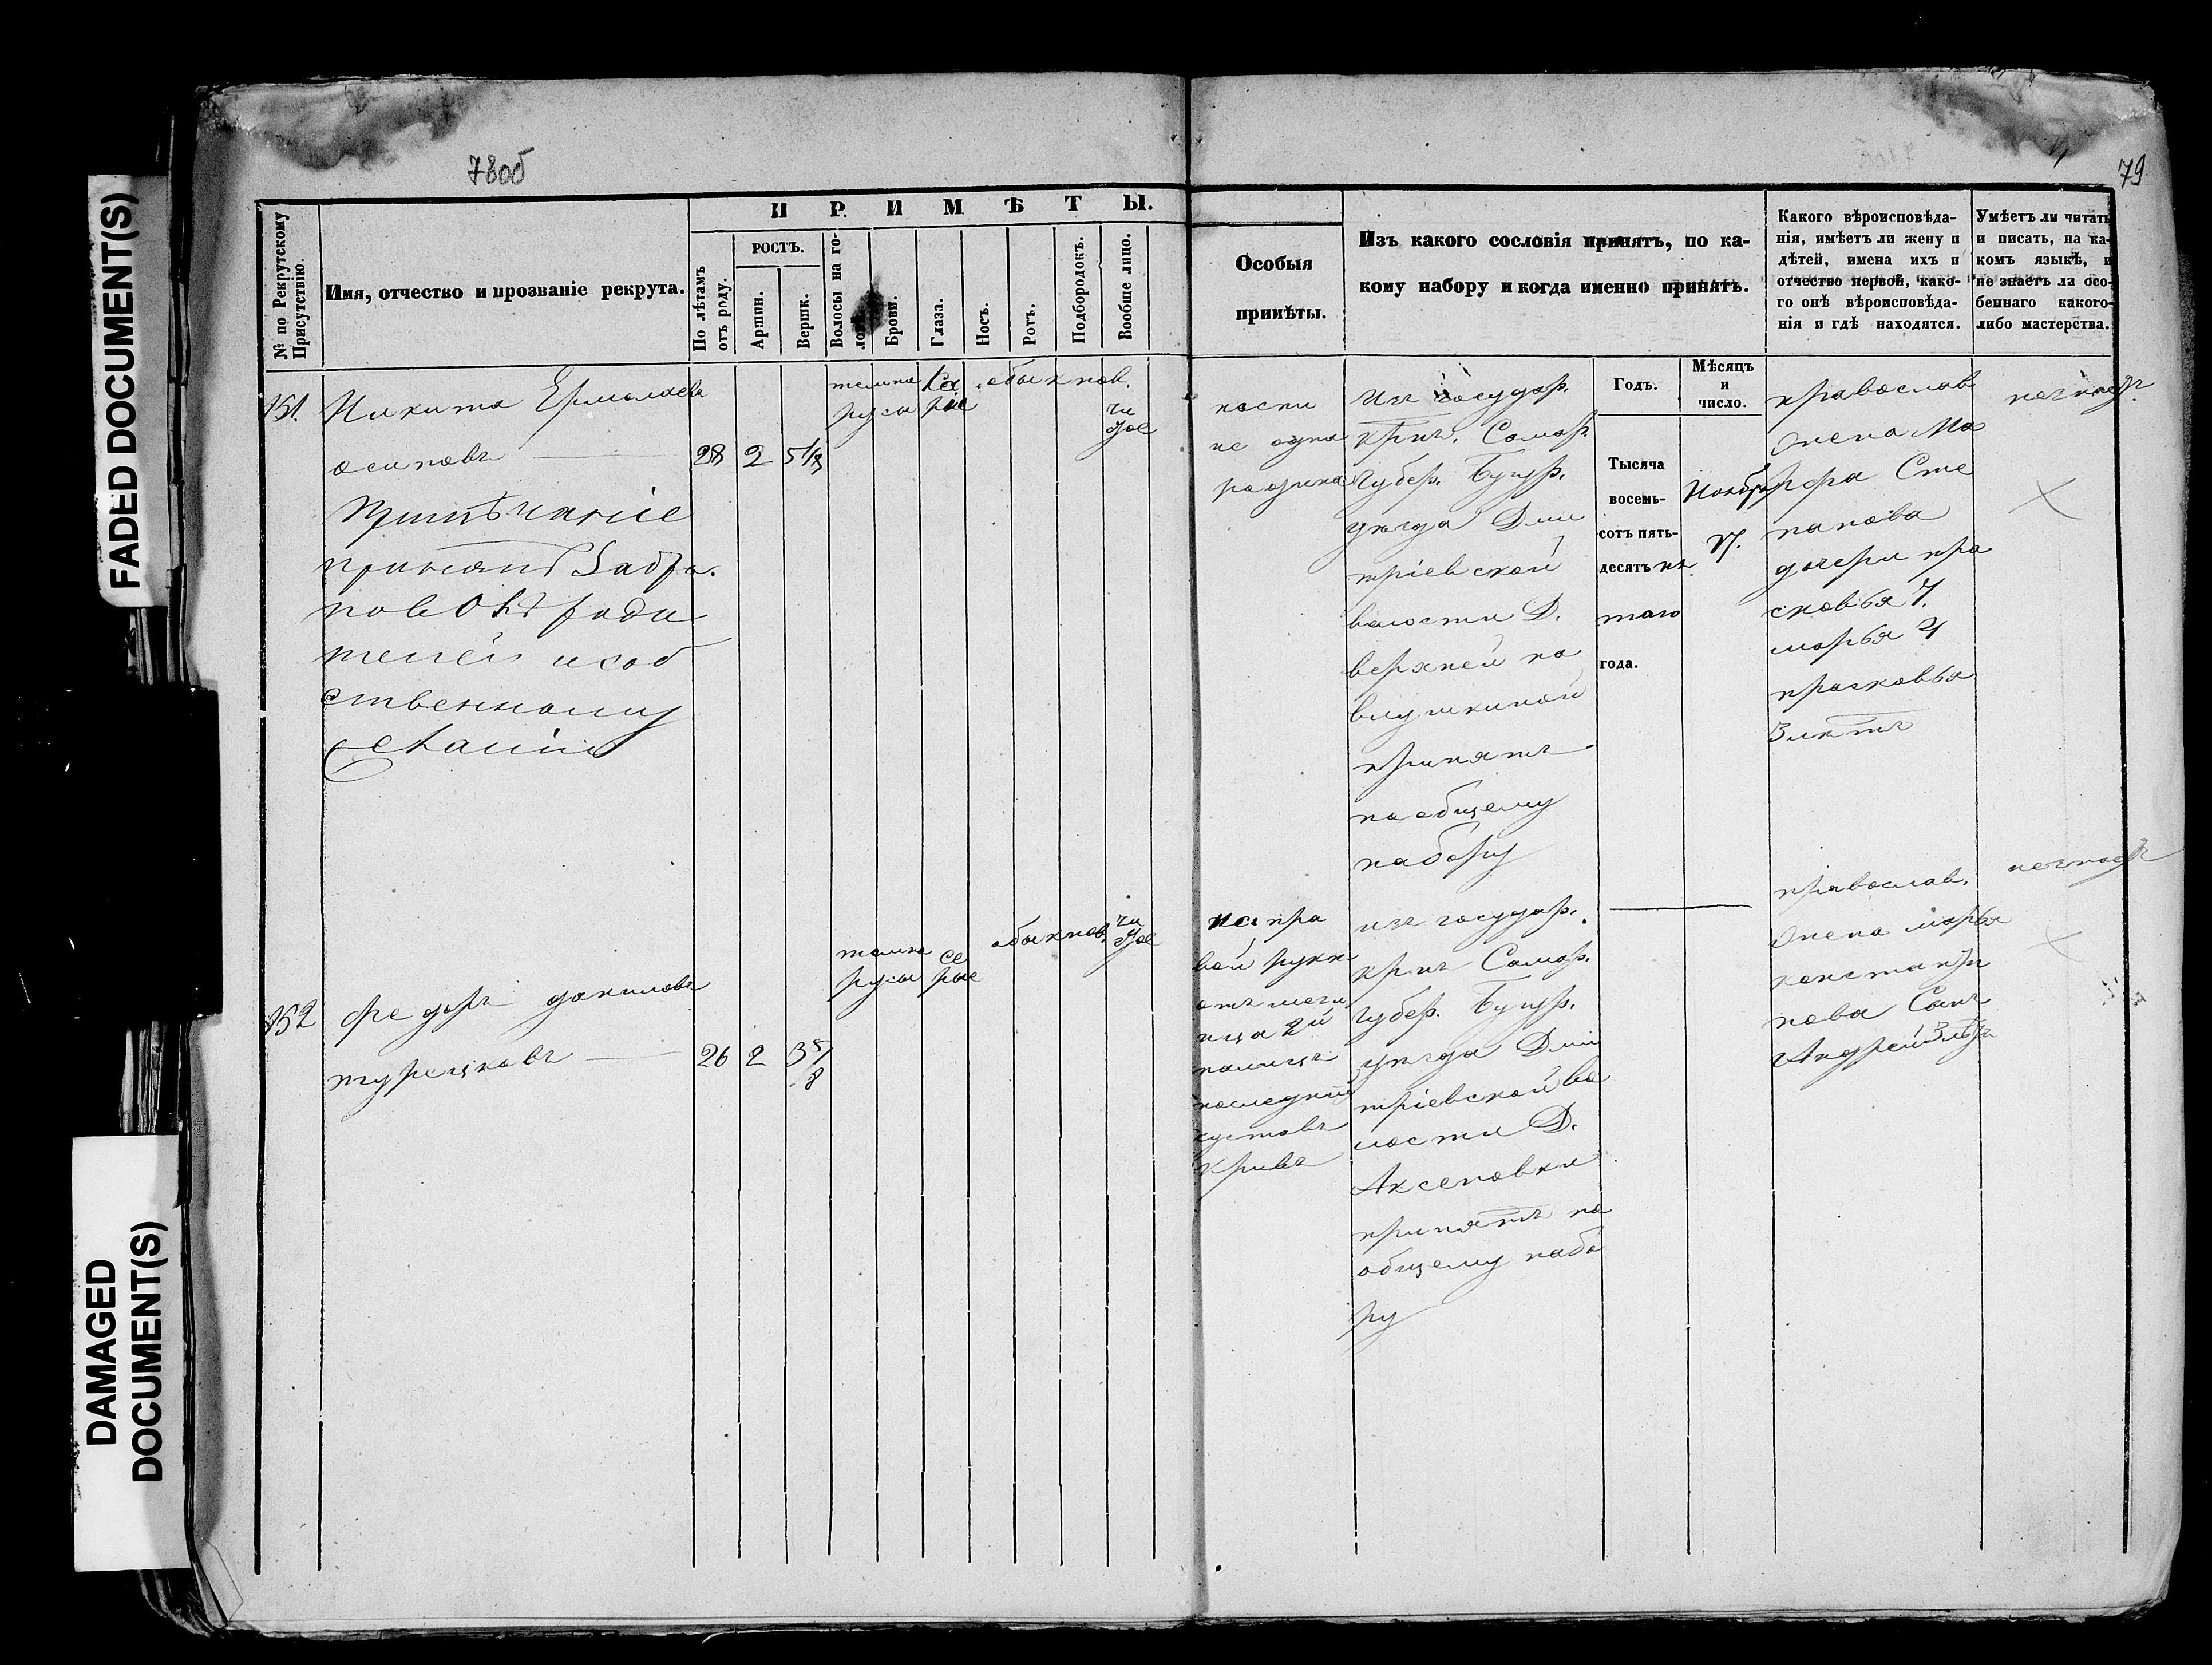 FADED DOCUMENT(S)
DAMAGED
DOCUMENT(S)
78об
79
№ по Рекрутскому
Присутствію.
Имя, отчество и прозваніе рекрута.
ПРИМѢТЫ.
По лѣтамъ
отъ роду.
РОСТЪ.
Аршин.
Вершк.
Волосы на го-
ловѣ.
Брови.
Глаза.
Носъ.
Ротъ.
Подбородокъ.
Вообще лицо.
Особыя
примѣты.
Изъ какого сословія принятъ, по ка-
кому набору и когда именно принятъ.
Годъ.
Мѣсяцъ
и
число.
Какого вѣроисповѣда-
нія, имѣетъ ли жену и
дѣтей, имена ихъ и
отчество первой, како-
го онѣ вѣроисповѣда-
нія и гдѣ находятся.
Умѣетъ ли читать
и писать, на ка-
комъ языкѣ, и
не знаетъ ли осо-
беннаго какого-
либо мастерства.
151.
Никита Ермолаевъ
осиповъ
28
2
5 1/8
темно
русы
Ка
ріе
обыкнов.
чи
стое
Примѣчаніе
принятъ
телей исоб
ственному
желанію
изъ государ.
крит. Самар.
губер. Бугур.
уѣзда Дми
тріевской
волости Д.
верхней па
влушкиной
принятъ
по общему
набору
Тысяча
восемь-
сотъ пять-
десятъ пя
таго
года.
Ноября
17.
православ
жена Ма
рфа Сте
панова
дочери пра
сковья 7.
марья 4
прасковья
3 лѣтъ
152
федоръ даниловъ
турецковъ
26
2
3 5/8
темно
русы
се
рые
обыкнов.
чи
стое
на пра
вой руки
отъ мези
нца 2й
палецъ
последній
суставъ
кривъ
изъ государ.
крит Самар.
губер. Бугур.
уѣзда Дми
тріевской во
лости Д.
Аксеновки
принятъ по
общему набо
ру
православ.
жена марья
константи
нова Сынъ
Андрей 3 лѣтъ